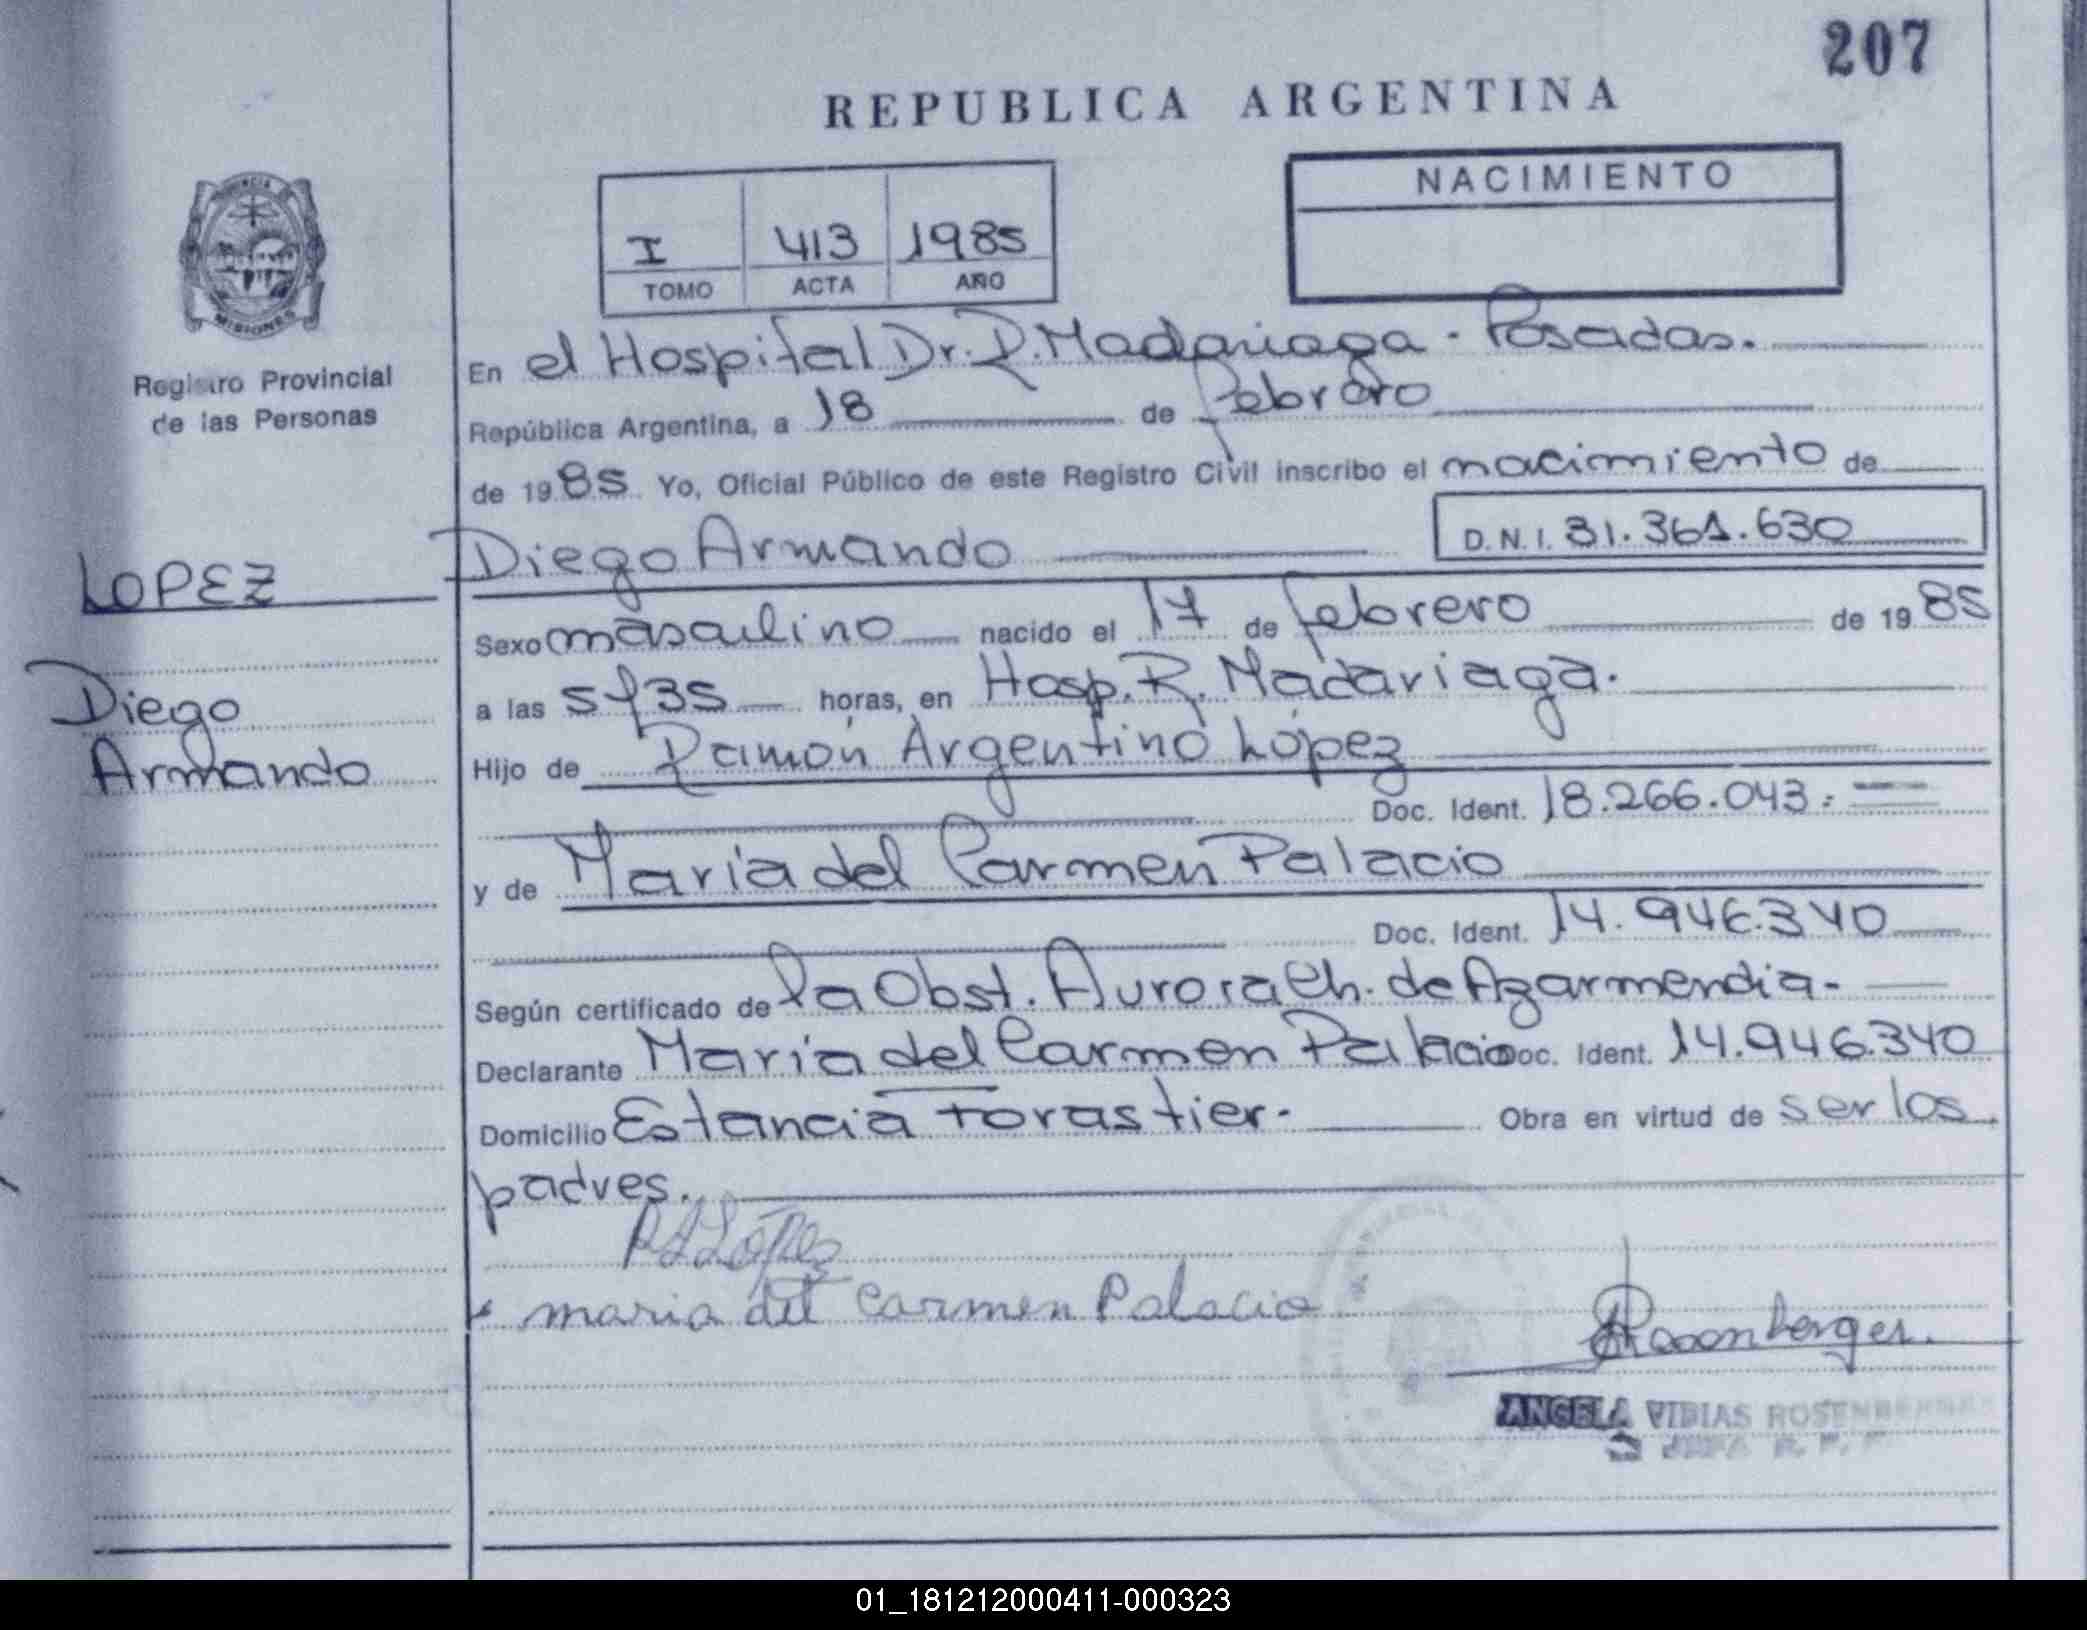 207
REPUBLICA ARGENTINA
NACIMIENTO
I 413 1985
TOMO ACTA AÑO
MISIONES
Registro Provincial
de las Personas
En el Hospital Dr. R. Madariaga - Posadas.
República Argentina, a 18 de febrero
de 1985 Yo, Oficial Público de este Registro Civil inscribo el nacimiento de
Diego Armando D.N.I. 31.361.630
LOPEZ
Diego
Armando
Sexo masculino nacido el 17 de febrero de 1985
a las 5y35 horas, en Hosp. R. Madariaga.
Hijo de Ramón Argentino López
Doc. Ident. 18.266.043.
y de María del Carmen Palacio
Doc. Ident. 14.946.340
Según certificado de la Obst. Aurora Ch. de Azarmendia-
Declarante María del Carmen Palacio Doc. Ident. 14.946.340
Domicilio Estancia Forastier- Obra en virtud de ser los
padres.
R A López
maria del carmen Palacio
Rosenberger.
ANGELA VIBIAS ROSENBERGER
JEFA R. P. P
01_181212000411-000323